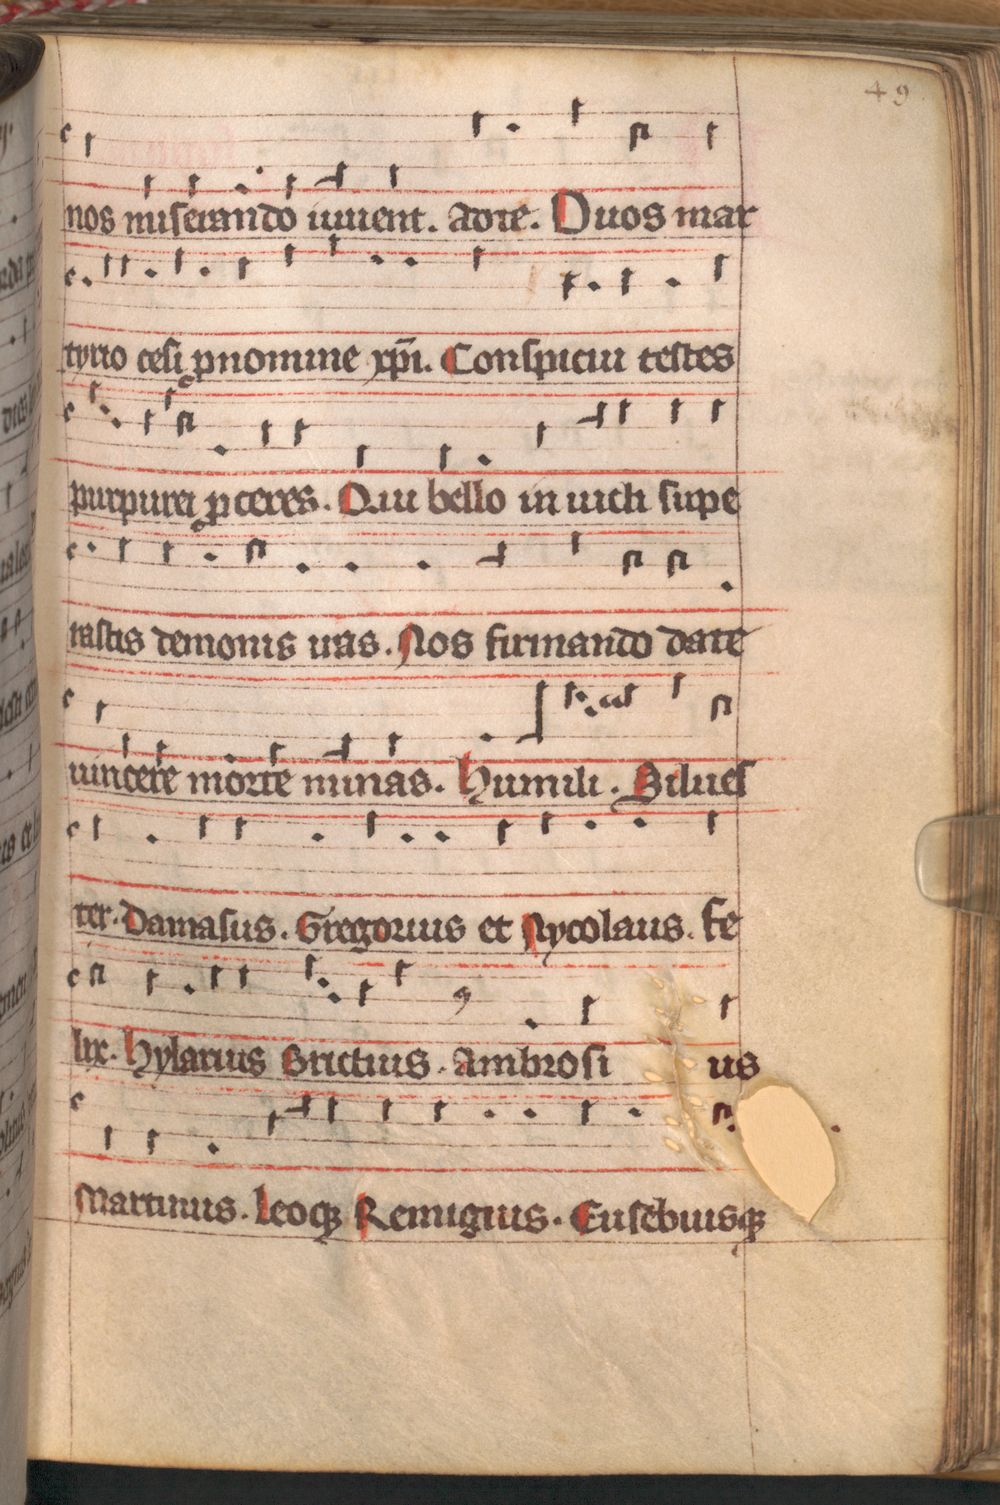 49
nos miserando iuuent. Adre. Quos mar
tyrio cesi pnomine xp̅i. Conspicui testes
purpurei pceres. Qui bello inuicti supe
rastis demonis iras. Nos firmando date
uincere morte minas. Humili. Silues
ter. Damasus. Gregorius et Nycolaus. fe
lix. Hylarius Brictius. Ambrosi us
Martinus. Leoqꝫ Remigius. Eusebiusqꝫ